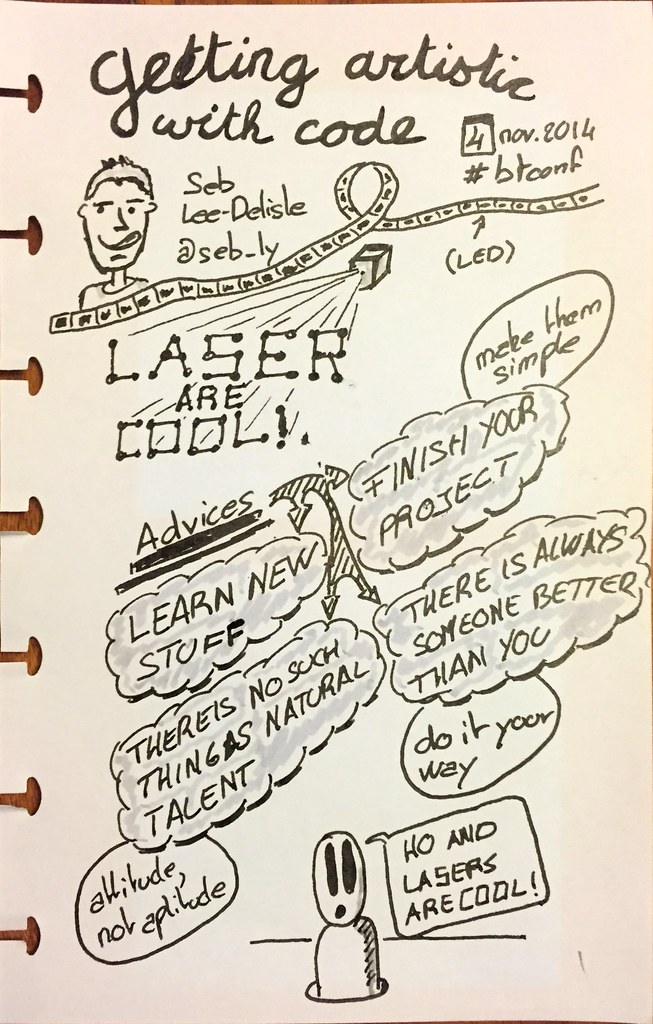 getting artistic
with code
4 nov. 2014
#btconf
Seb
Lee-Delisle
@seb_ly
(LED)
LASER
ARE
COOL!
make them
simple
FINISH YOUR
PROJECT
Advices
LEARN NEW
STUFF
THERE IS ALWAYS
SOMEONE BETTER
THAN YOU
do it your
way
THERE IS NO SUCH
THING AS NATURAL
TALENT
attitude,
not aptitude
HO AND
LASERS
ARE COOL!